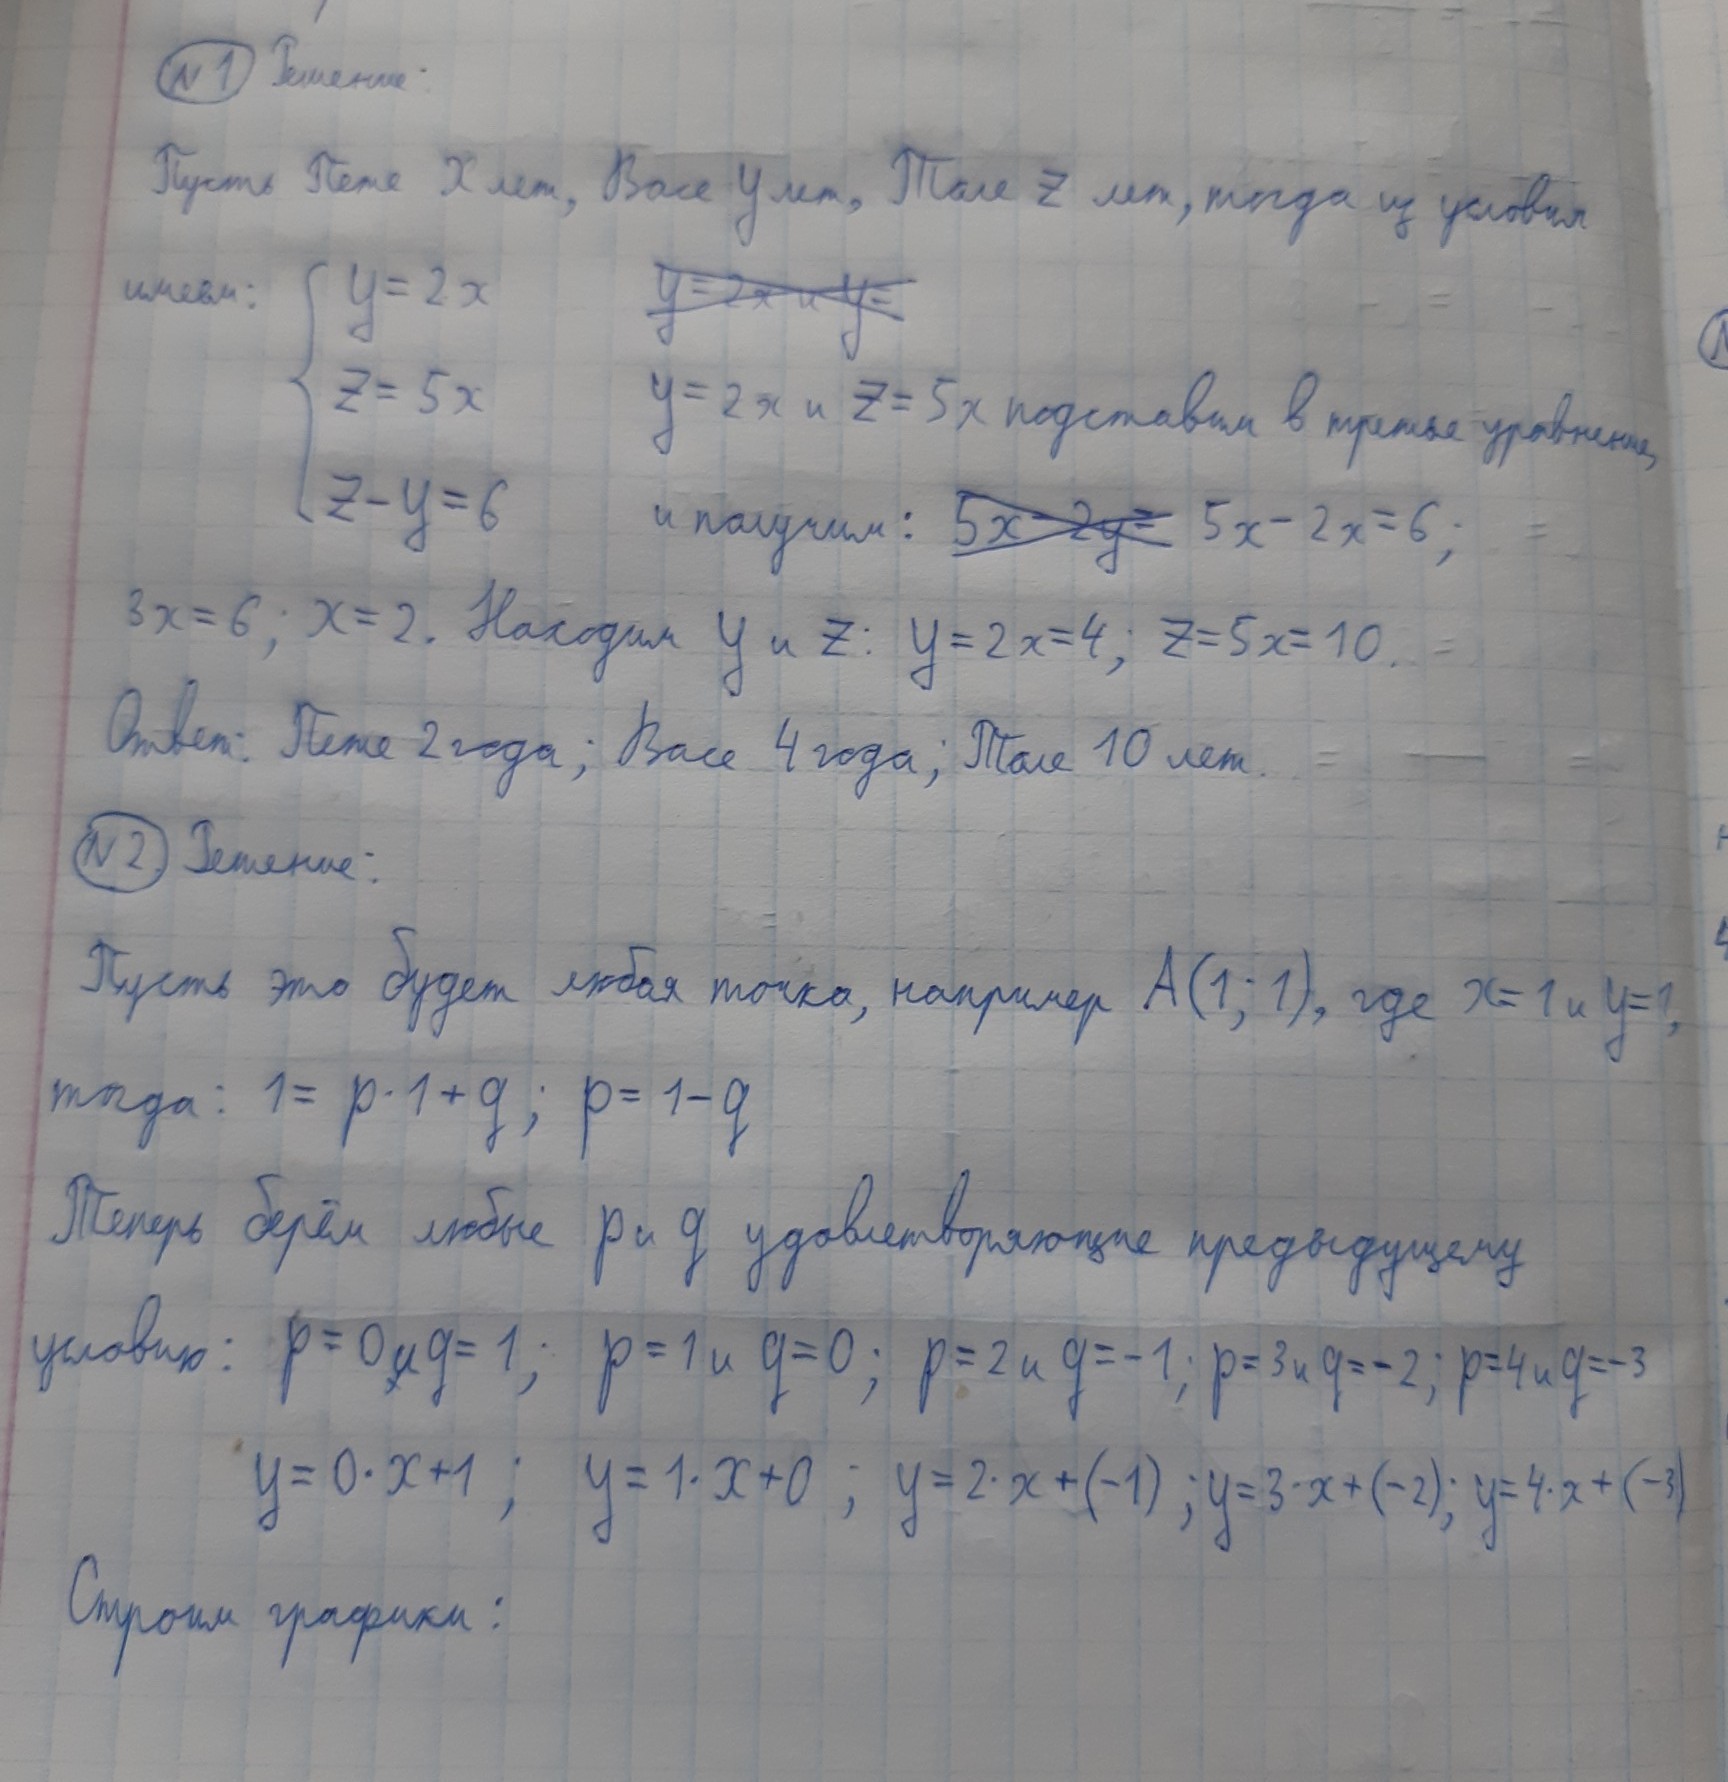 №1 Решение:
Пусть Пете x лет, Васе y лет, Толе z лет, тогда из условия
имеем: { y = 2x y=2x и y=
z = 5x y=2x и z=5x подставим в третье уравнение,
z-y=6 и получим: 5x-2y= 5x-2x=6;
3x=6; x=2. Находим y и z: y=2x=4; z=5x=10.
Ответ: Пете 2 года; Васе 4 года; Толе 10 лет.
№2 Решение:
Пусть это будет любая точка, например A(1; 1), где x=1 и y=1,
тогда: 1= p·1+q; p=1-q
Теперь берём любые p и q удовлетворяющие предыдущему
условию: p=0 и q=1; p=1 и q=0; p=2 и q=-1; p=3 и q=-2; p=4 и q=-3
y=0·x+1; y=1·x+0; y=2·x+(-1); y=3·x+(-2); y=4·x+(-3)
Строим графики: